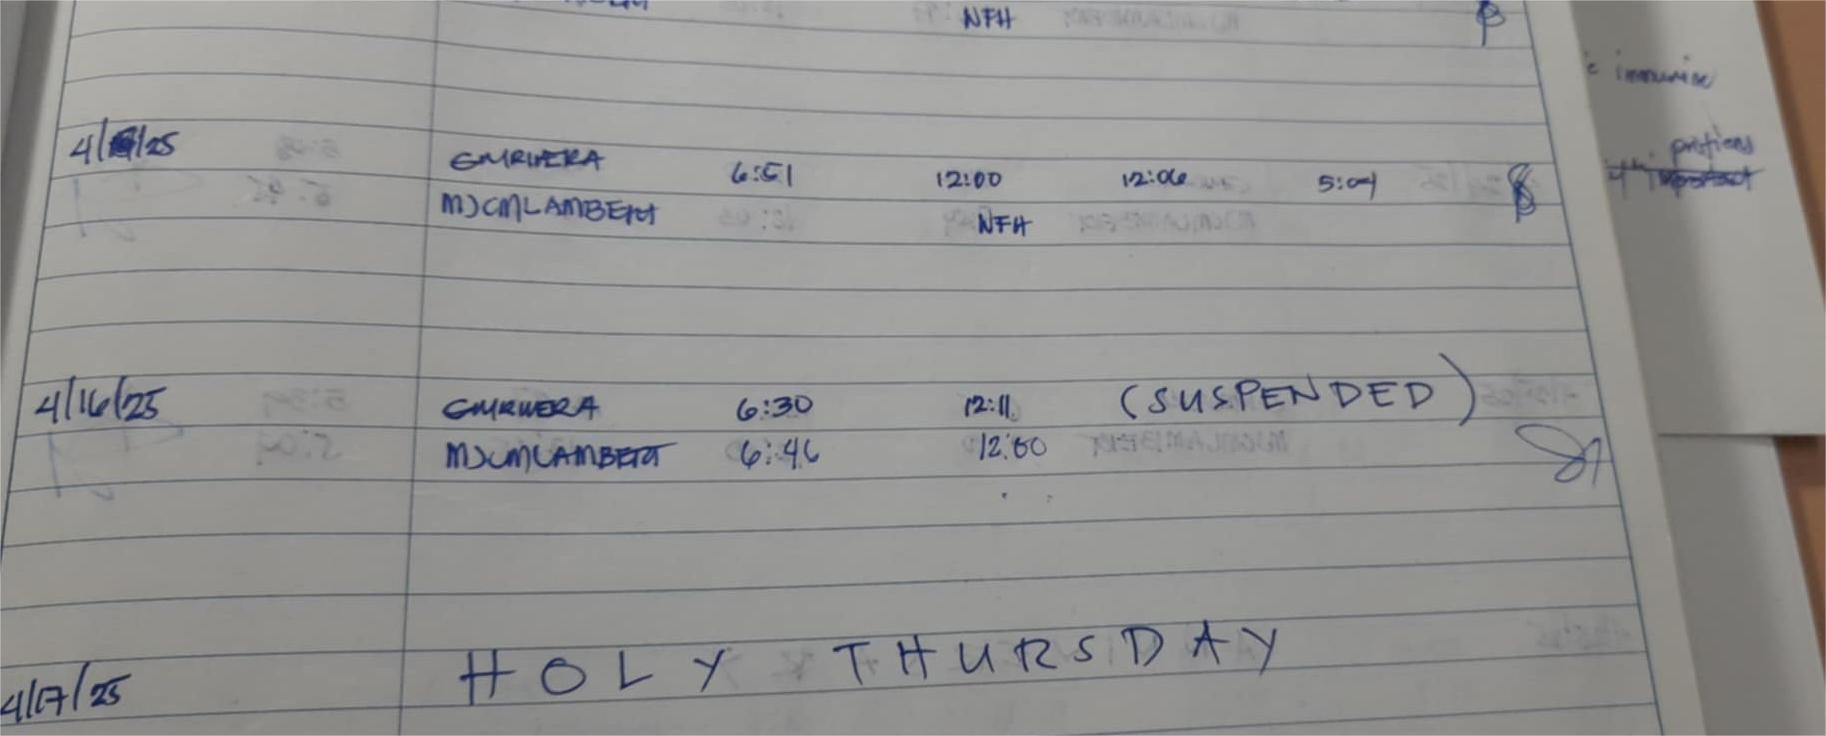 NFH
4/15/25 GMRIVERA 6:51 12:00 12:06 5:04
MJCMLAMBERT NFH
4/16/25 GMRIVERA 6:30 12:11 (SUSPENDED)
MJCMLAMBERT 6:46 12:00
4/17/25 HOLY THURSDAY
immunise